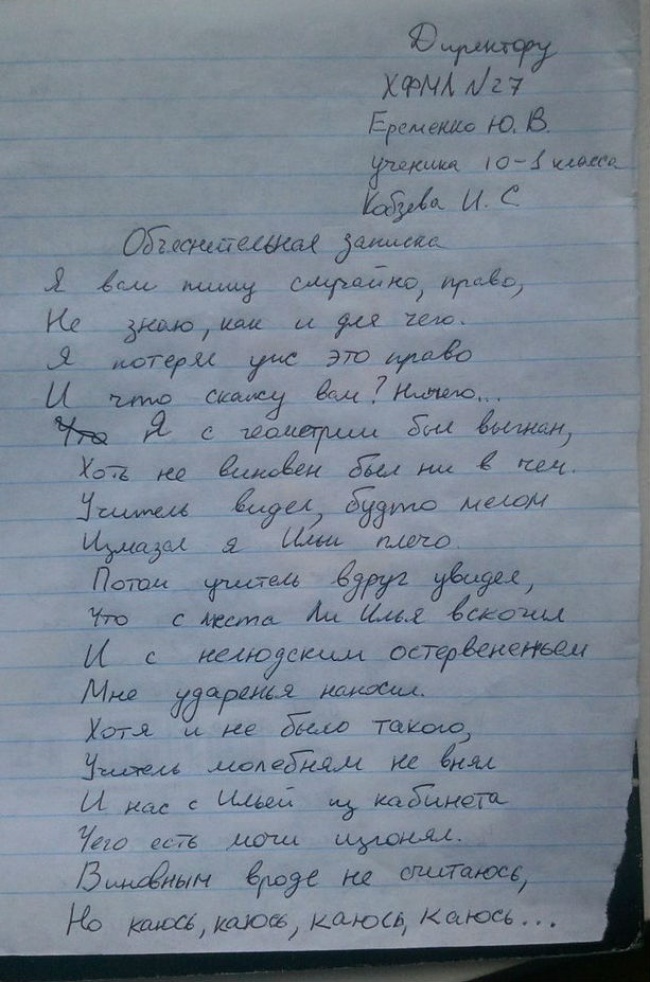 Директору
ХФМЛ №27
Еременко Ю. В.
ученика 10-1 класса
Кобзева И. С
Объеснительная записка
Я вам пишу случайно, право,
Не знаю, как и для чего.
Я потерял уже это право
И что скажу вам? Ничего...
Что Я с геометрии был выгнан,
Хоть не виновен был ни в чем.
Учитель видел, будто мелом
Измазал я Ильи плечо
Потом учитель вдруг увидел,
Что с места Ли Илья вскочил
И с нелюдским остервененьем
Мне ударенья наносил.
Хотя и не было такого,
Учитель молебням не внял
И нас с Ильей из кабинета
Чего есть мочи изгонял.
Виновным вроде не считаюсь,
Но каюсь, каюсь, каюсь, каюсь...